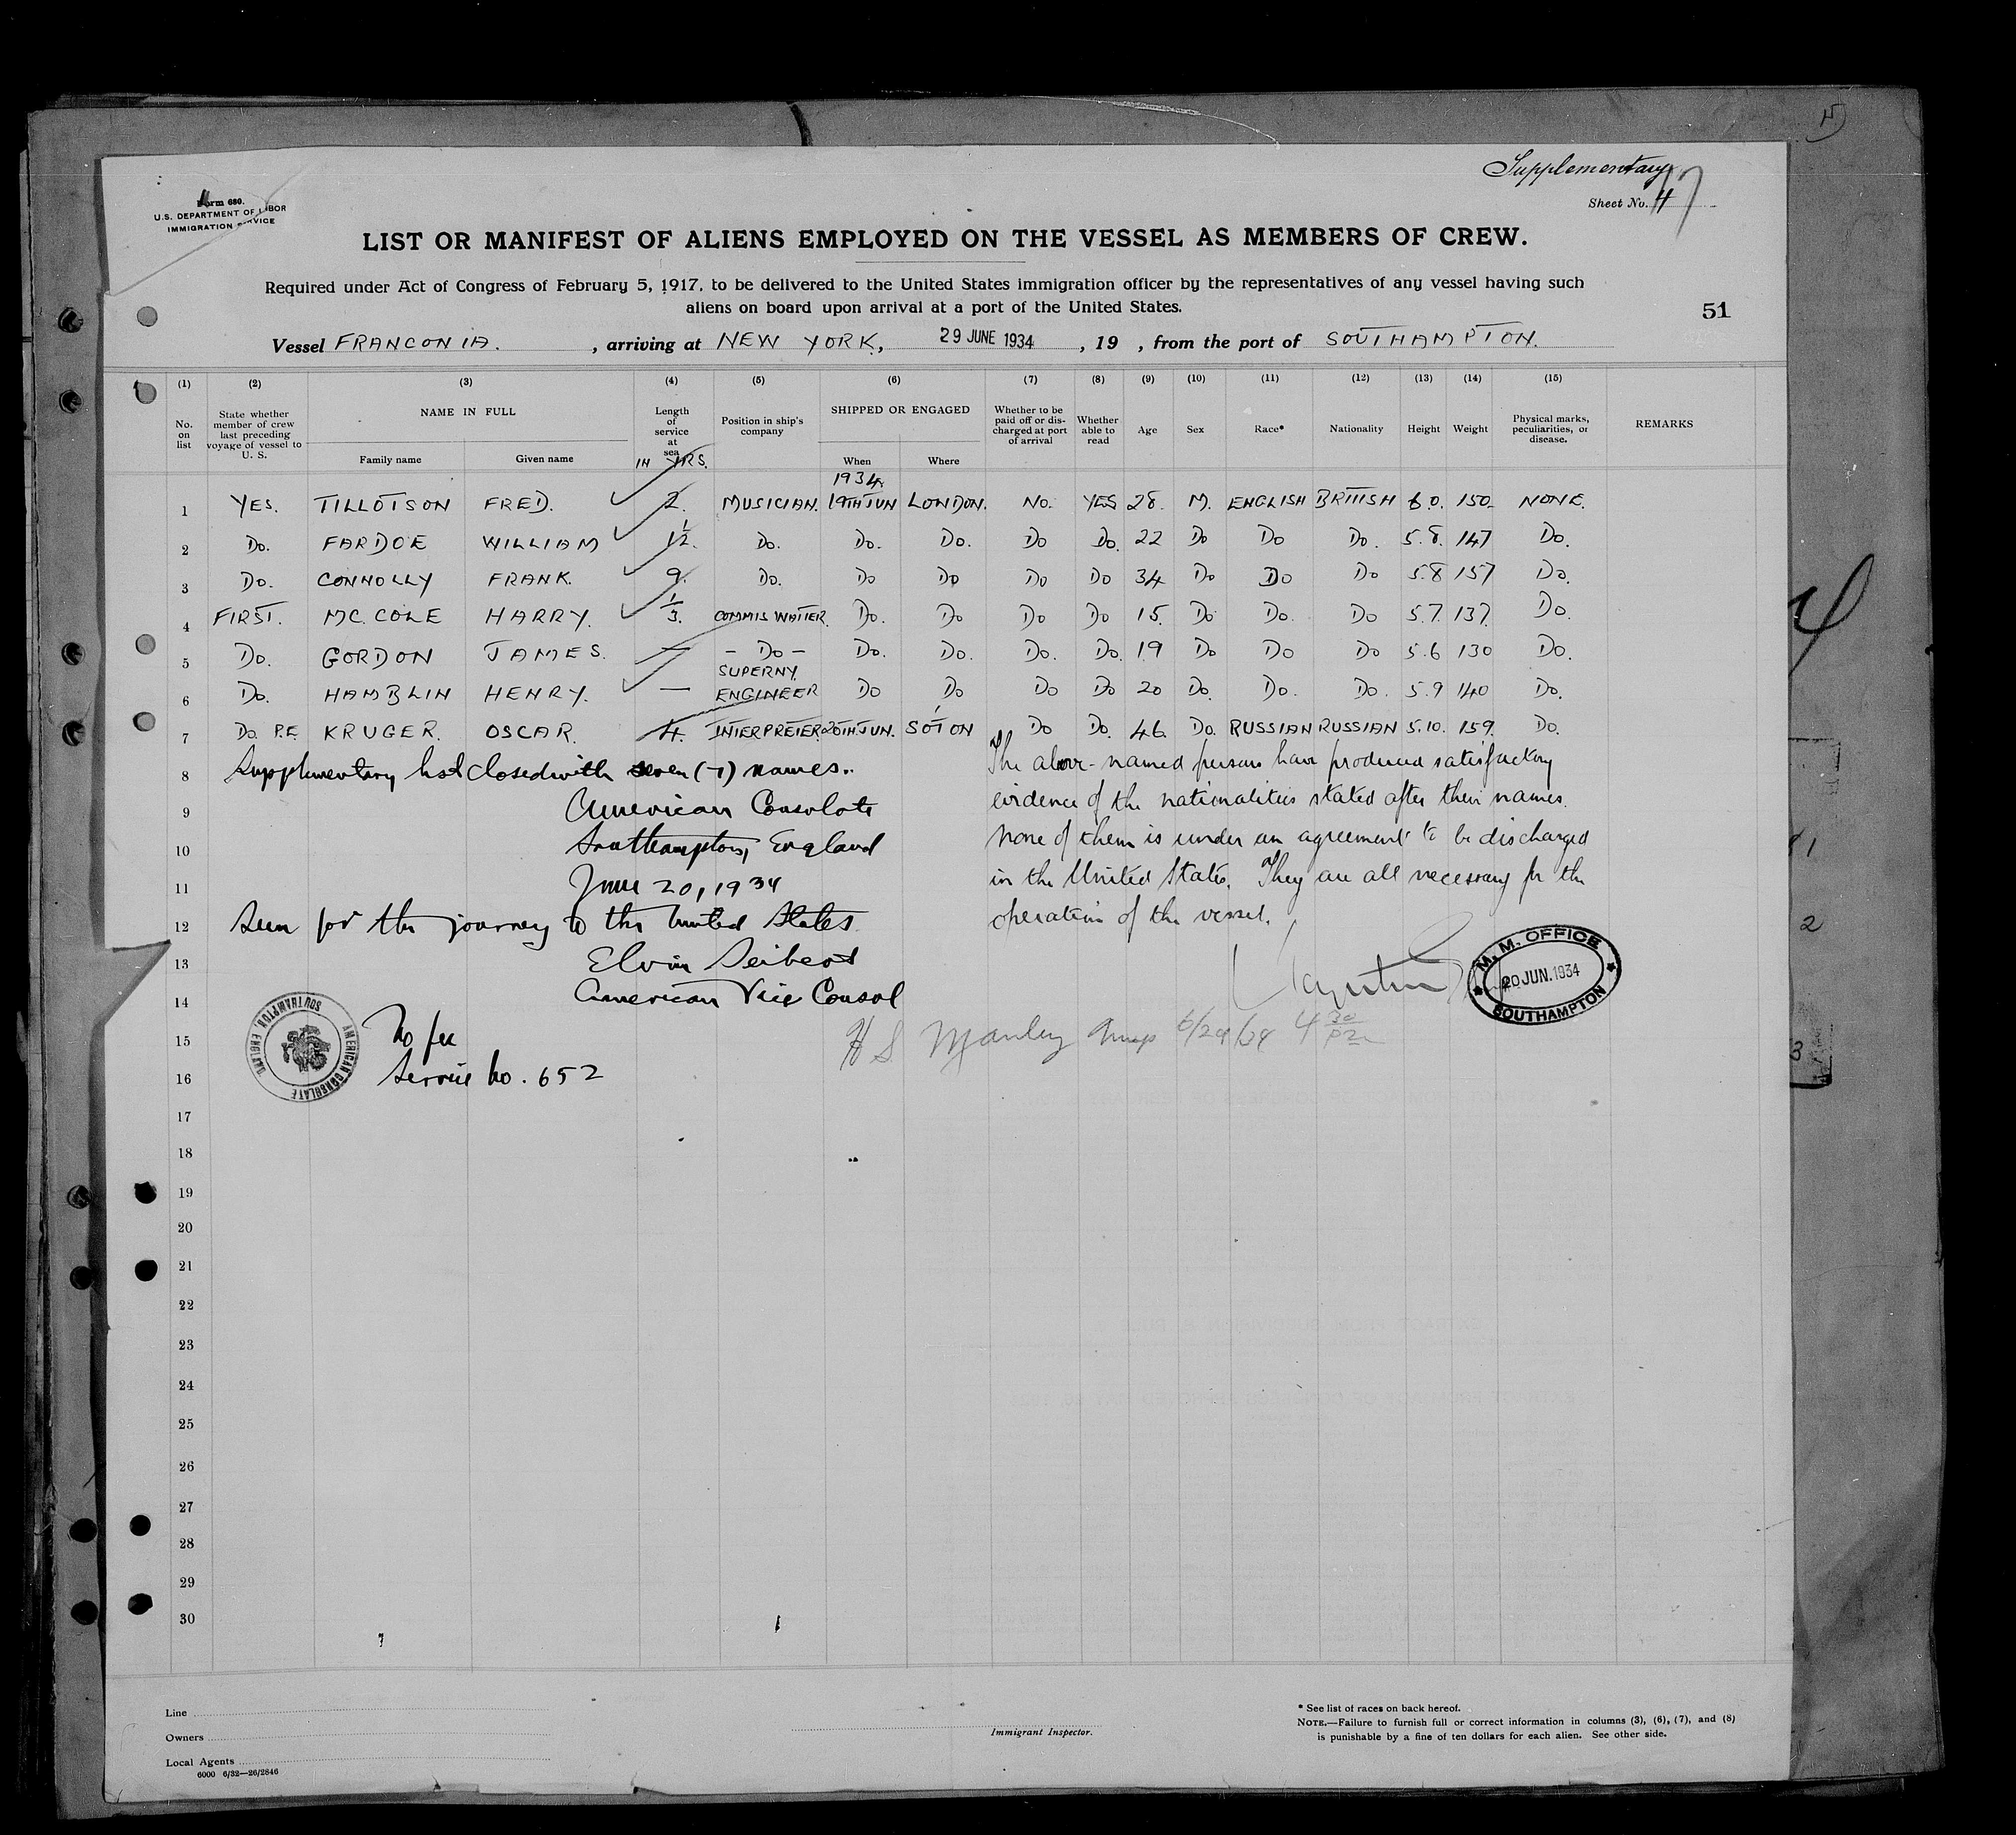 Supplementary
Form 680.
U.S. DEPARTMENT OF LABOR
IMMIGRATION SERVICE
Sheet No. 4
LIST OR MANIFEST OF ALIENS EMPLOYED ON THE VESSEL AS MEMBERS OF CREW.
Required under Act of Congress of February 5, 1917, to be delivered to the United States immigration officer by the representatives of any vessel having such
aliens on board upon arrival at a port of the United States.
51
Vessel FRANCONIA. , arriving at NEW YORK, 29 JUNE 1934 , 19 , from the port of SOUTHAMPTON.
(1) (2) (3) (4) (5) (6) (7) (8) (9) (10) (11) (12) (13) (14) (15)
No. on list
State whether member of crew last preceding voyage of vessel to U. S.
NAME IN FULL
Family name Given name
Length of service at sea IN YRS.
Position in ship's company
SHIPPED OR ENGAGED
When Where
Whether to be paid off or discharged at port of arrival
Whether able to read
Age
Sex
Race*
Nationality
Height
Weight
Physical marks, peculiarities, or disease.
REMARKS
1934
1 YES. TILLOTSON FRED. 2. MUSICIAN. 19TH JUN LONDON. NO. YES 28. M. ENGLISH BRITISH 6.0. 150. NONE.
2 Do. FARDOE WILLIAM 1/2. Do. Do. Do. Do Do. 22 Do Do Do. 5.8. 147 Do.
3 Do. CONNOLLY FRANK. 9. Do. Do Do Do Do 34 Do Do Do 5.8 157 Do.
4 FIRST. MC.COLE HARRY. 1/3. COMMIS WAITER. Do. Do Do Do 15. Do Do. Do 5.7. 137. Do.
5 Do. GORDON JAMES. — - Do - Do. Do. Do. Do. 19 Do Do Do 5.6 130 Do.
6 Do. HAMBLIN HENRY. — SUPERNY. ENGINEER Do Do Do Do 20 Do. Do. Do. 5.9 140 Do.
7 Do. P.F. KRUGER. OSCAR. 4. INTERPRETER. 20TH JUN. SO'TON Do Do. 46. Do. RUSSIAN RUSSIAN 5.10. 159. Do.
8 Supplementary list closed with seven (7) names.
9 American Consulate
10 Southampton, England
11 June 20, 1934
12 Seen for the journey to the United States
13 Elvin Seibert
14 American Vice Consul
15 No fee
16 Service No. 652
The above-named persons have produced satisfactory
evidence of the nationalities stated after their names.
None of them is under an agreement to be discharged
in the United States. They are all necessary for the
operation of the vessel.
M. M. OFFICE
20 JUN. 1934
SOUTHAMPTON
AMERICAN CONSULATE
SOUTHAMPTON, ENGLAND
H S Manley 6/29/34 4 30
17
18
19
20
21
22
23
24
25
26
27
28
29
30
Line
Owners
Local Agents
6000 6/32—26/2846
Immigrant Inspector.
* See list of races on back hereof.
NOTE.—Failure to furnish full or correct information in columns (3), (6), (7), and (8)
is punishable by a fine of ten dollars for each alien. See other side.